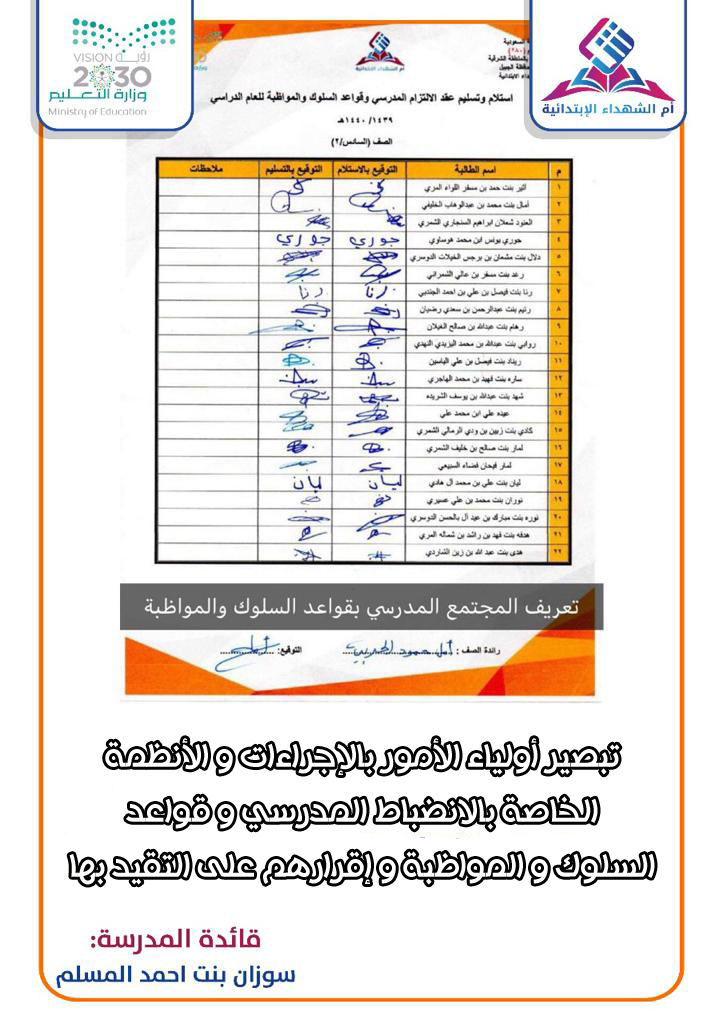 رؤيـــة VISION
2030
وزارة التعـليم
Ministry of Education
أم الشهداء الإبتدائية
أم الشهداء الابتدائية
استلام وتسليم عقد الالتزام المدرسي وقواعد السلوك والمواظبة للعام الدراسي
١٤٣٩/ ١٤٤٠هـ
الصف (السادس/٢)
م اسم الطالبة التوقيع بالاستلام التوقيع بالتسليم ملاحظات
١ أثير بنت حمد بن مسفر اللواء المري
٢ أمال بنت محمد بن عبدالوهاب الخليفي
٣ العنود شعلان ابراهيم السنجاري الشمري
٤ جوري يونس ابن محمد هوساوي جوري جوري
٥ دلال بنت مشعان بن برجس الخيلات الدوسري
٦ رغد بنت مسفر بن عالي الشمراني
٧ رنا بنت فيصل بن علي بن احمد الجندبي رنا رنا
٨ رنيم بنت عبدالرحمن بن سعدي رضيان
٩ رهام بنت عبدالله بن صالح الغيلان
١٠ روابي بنت عبدالله بن محمد اليزيدي النهدي
١١ ريناد بنت فيصل بن علي الياسين
١٢ ساره بنت فهيد بن محمد الهاجري
١٣ شهد بنت عبدالله بن يوسف الشريده
١٤ عيده علي ابن محمد علي
١٥ كادي بنت زبين بن ودي الرمالي الشمري
١٦ لمار بنت صالح بن خليف الشمري
١٧ لمار فيحان فضاء السبيعي
١٨ ليان بنت علي بن محمد آل هادي ليان ليان
١٩ نوران بنت محمد بن علي عسيري
٢٠ نوره بنت مبارك بن عيد آل بالحسن الدوسري
٢١ هدفه بنت فهد بن راشد بن شماله المري
٢٢ هدى بنت عبد الله بن زين الشاردي
تعريف المجتمع المدرسي بقواعد السلوك والمواظبة
رائدة الصف : أمل حمود الحربي التوقيع: أمل
تبصير أولياء الأمور بالإجراءات و الأنظمة
الخاصة بالانضباط المدرسي و قواعد
السلوك و المواظبة و إقرارهم على التقيد بها
قائدة المدرسة:
سوزان بنت احمد المسلم